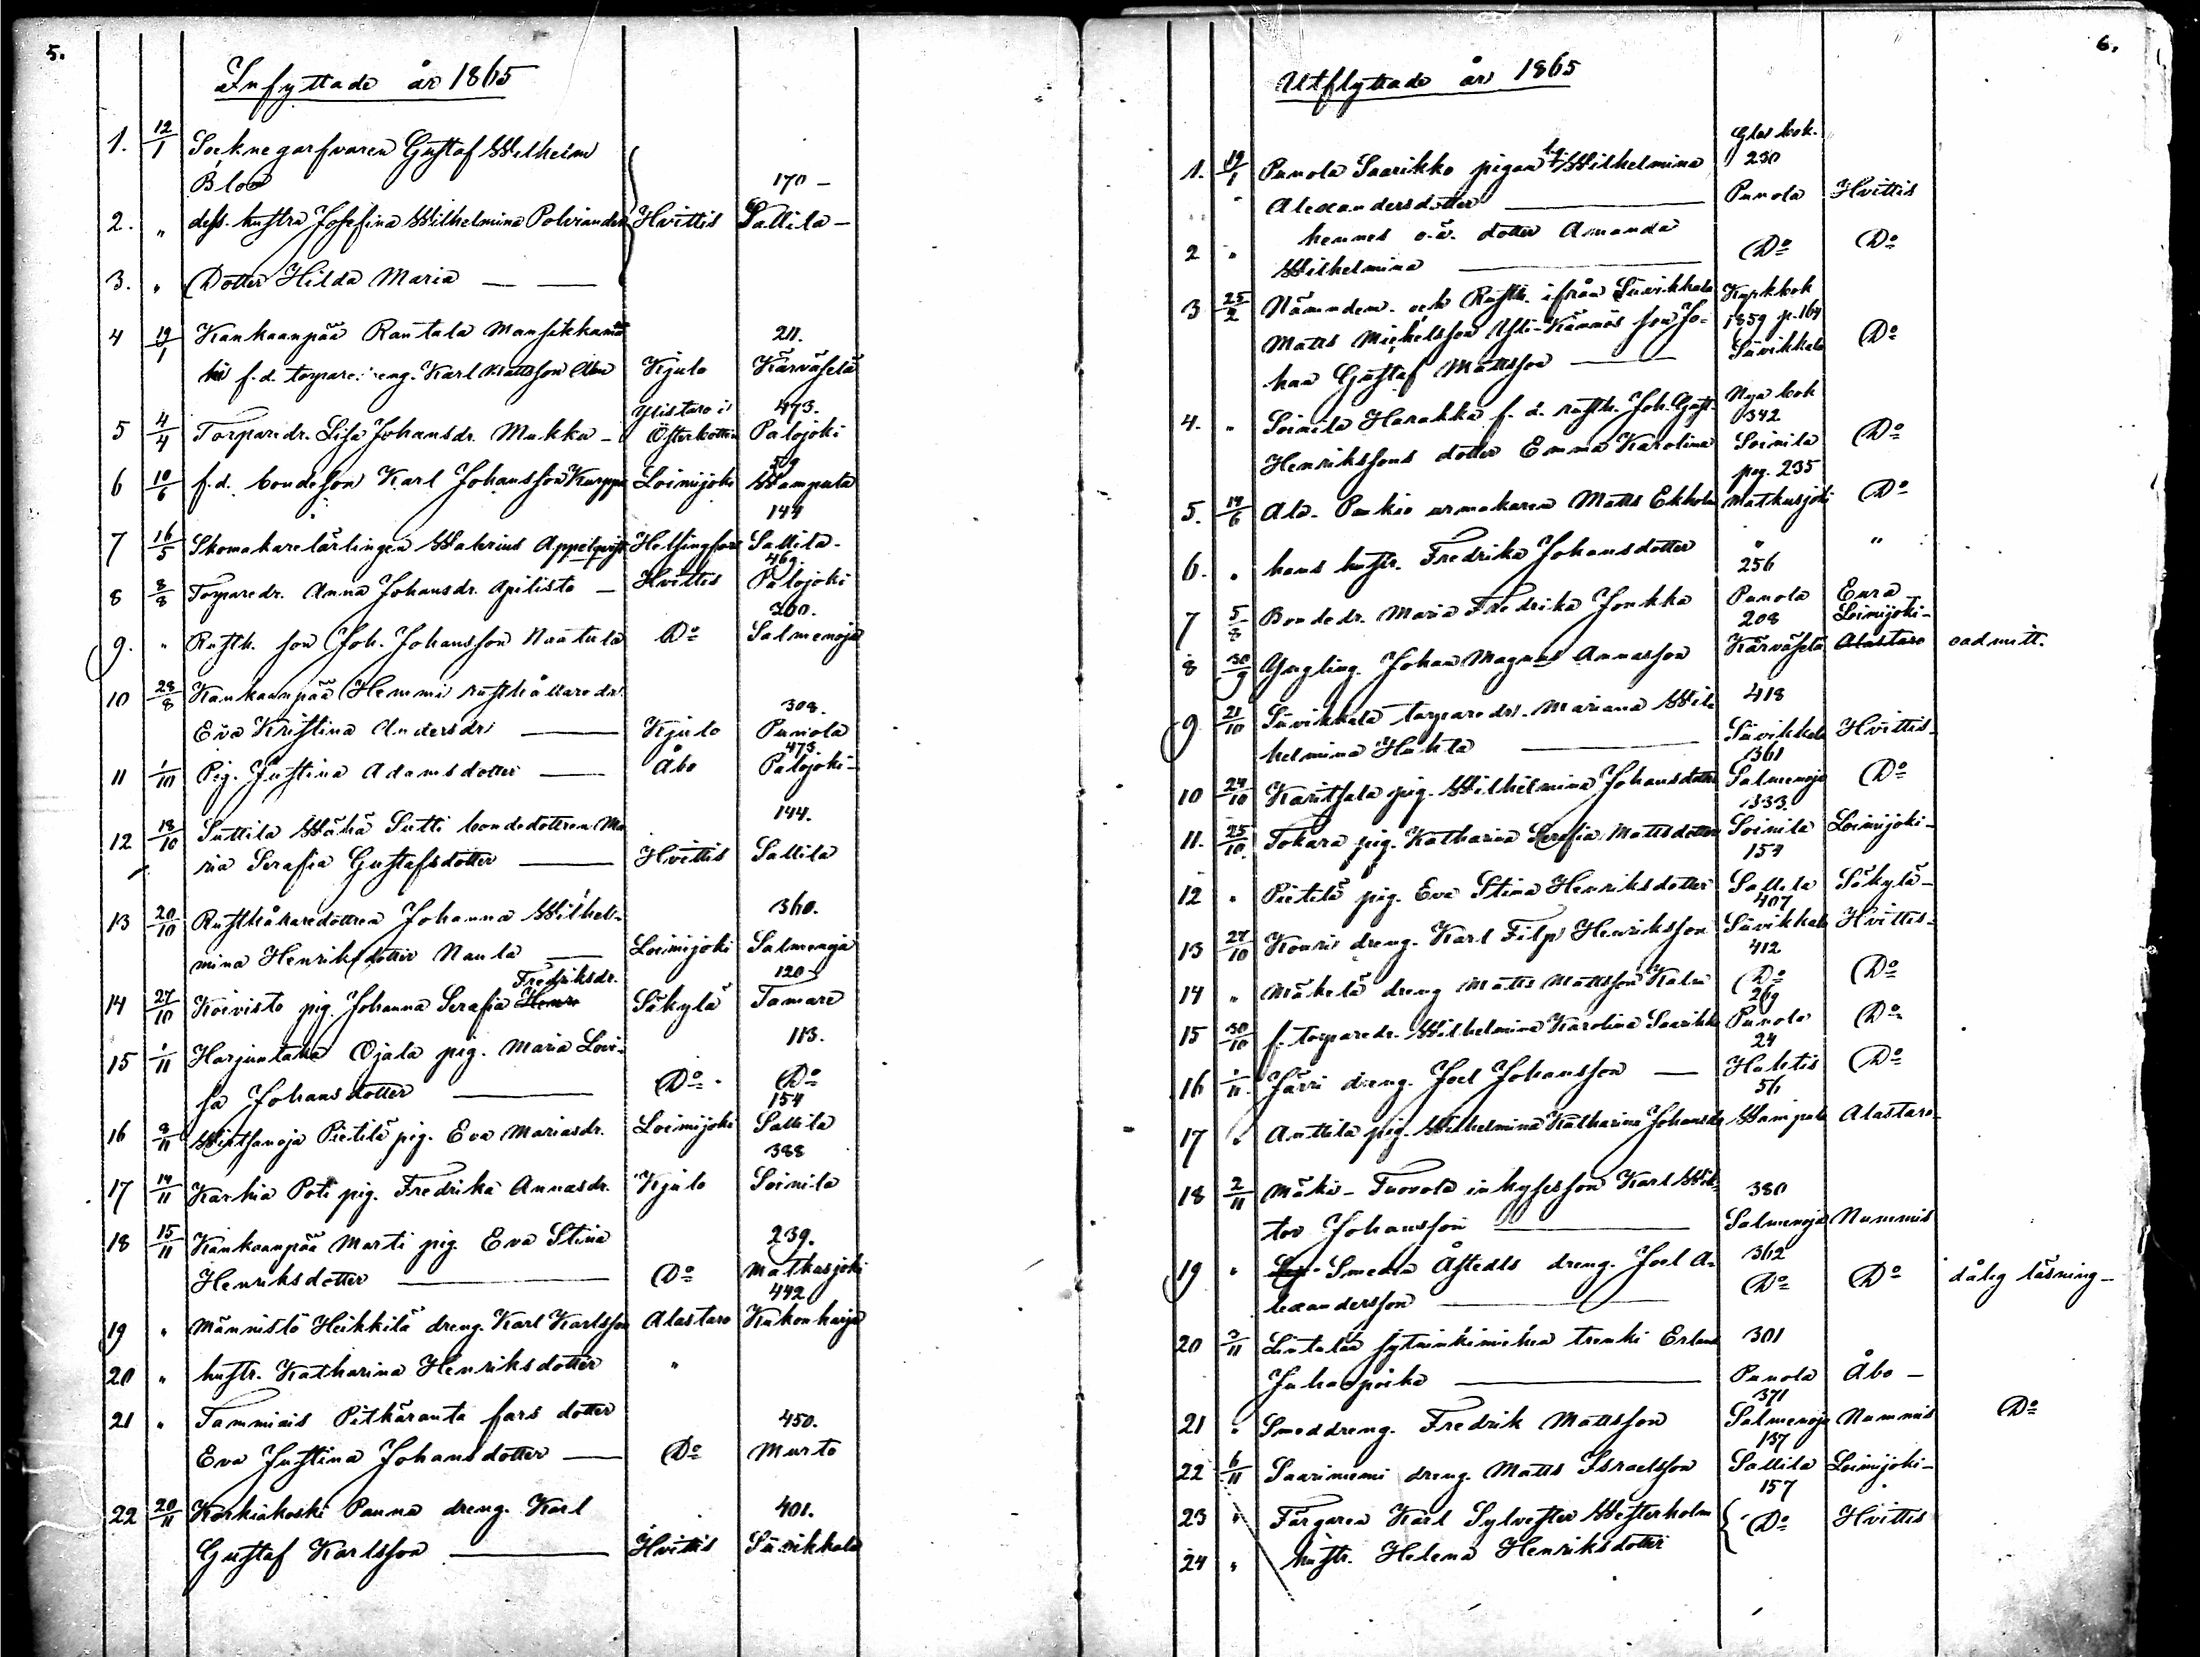 5.
Inflyttade år 1865
1. 12/1 Socknegarfvaren Gustaf Wilhelm
Blom 170 -
2. " dess hustra Josefina Wilhelmina Polviander Hvittis Sallila -
3. " Dotter Hilda Maria
4 19/1 Kankaanpää Rantala Mansikkamä 211.
ki f.d. torpare dreng. Karl Mattsson Kjulo Kärväselä
Ylistaro i 473.
5 4/4 Torparedr. Lisa Johansdr. Makka - Österbotten Palojoki
59
6 10/6 f.d. bondeson Karl Johansson Kurppa Loimijoki Wampula
144
7 16/5 Skomakarelärlingen Walerius Appelqvist Helsingfors Sallila -
469.
8 8/8 Torparedr. Anna Johansdr. Apilisto - Hvittis Palojoki
360.
9. " Rusth. son Joh. Johansson Naatula Do Salmenoja
10 28/8 Kankaanpää Hemmi rusthållaredr. 308.
Eva Kristina Andersdr. Kjulo Punola
473.
11 1/10 Pig. Justina Adamsdotter Åbo Palojoki -
144.
12 18/10 Suttila Wähä Sutti bondedottren Ma
ria Serafia Gustafsdotter Hvittis Sallila
13 20/10 Rusthållaredottren Johanna Wilhel- 360.
mina Henriksdotter Naula Loimijoki Salmenoja
Fredriksdr. 120
14 27/10 Koivisto pig. Johanna Serafia Henr Säkylä Tamare
15 1/11 Harjuntaka Ojala pig. Maria Lovi- 113.
sa Johansdotter Do Do
154
16 8/11 Wirtsanoja Pietilä pig. Eva Mariasdr. Loimijoki Sallila
388
17 14/11 Karhia Poti pig. Fredrika Annasdr. Kjulo Soinila
18 15/11 Kankaanpää Marti pig. Eva Stina 239.
Henriksdotter Do Matkusjoki
442
19 " Männistö Heikkilä dreng. Karl Karlsson Alastaro Kukonharja
20 " hustr. Katharina Henriksdotter "
21 " Tammiais Pitkäranta fars dotter 450.
Eva Justina Johansdotter Do Murto
22 20/11 Korkiakoski Panna dreng. Karl 401.
Gustaf Karlsson Hvittis Suvikkala
6.
Utflyttade år 1865
bok.
1. 12/1 Punola Saarikko pigan Wilhelmina 230
Alexandersdotter Punola Hvittis
2 " hennes o.ä. dotter Amanda
Wilhelmina Do Do
3 25/2 Nämndem. och Rusth. ifrån Suvikkala Kyrkbok
Matts Michelsson Yli-Kännös son Jo- 1859 p. 164
han Gustaf Mattsson Suvikkala Do
4. " Soinila Harakka f.d. rusth. Joh. Gust. Nya bok
342
Henrikssons dotter Emma Karolina Soinila Do
pag. 235
5. 14/6 Ala-Paukio urmakaren Matts Ekholm Matkusjoki Do
6. " hans hustr. Fredrika Johansdotter " "
256
7 5/8 Bondedr. Maria Fredrika Jonkka Punola Eura
208 Loimijoki -
8 30/9 Yngling. Johan Magnus Annasson Kärväselä Alastaro oadmitt.
9 21/10 Suvikkala torparedr. Mariana Wil 418
helmina Huhta Suvikkala Hvittis -
361
10 24/10 Karitsala pig. Wilhelmina Johansdotter Salmenoja Do
333.
11. 25/10. Tokara pig. Katharina Serafia Mattsdotter Soinila Loimijoki -
154
12 " Pietilä pig. Eva Stina Henriksdotter Sallila Säkylä -
407
13 27/10 Kouri dreng. Karl Filip Henriksson Suvikkala Hvittis -
412
14 " Mäkelä dreng Matts Mattsson Kalu Do Do
269
15 30/10 f. torparedr. Wilhelmina Karolina Saarikko Punola Do
24
16 1/11. Järri dreng. Joel Johansson Huhtis Do
56
17 " Anttila pig. Wilhelmina Katharina Johansdr. Wampula Alastaro -
18 2/11 Mäki-Tuovola inhyseson Karl Wik- 380
tor Johansson Salmenoja Nummis
19 " Smeden Åstedts dreng. Joel A- 362
lexandersson Do Do dålig läsning -
20 3/11 Lintalan sytninkimiehen trenki Erland 301
Juhanpoika Punola Åbo -
371
21 " Smeddreng. Fredrik Mattsson Salmenoja Nummis Do
137
22 6/11 Saariniemi dreng. Matts Israelsson Sallila Loimijoki -
157
23 " Färgaren Karl Sylvester Westerholm Do Hvittis
24 " hustr. Helena Henriksdotter